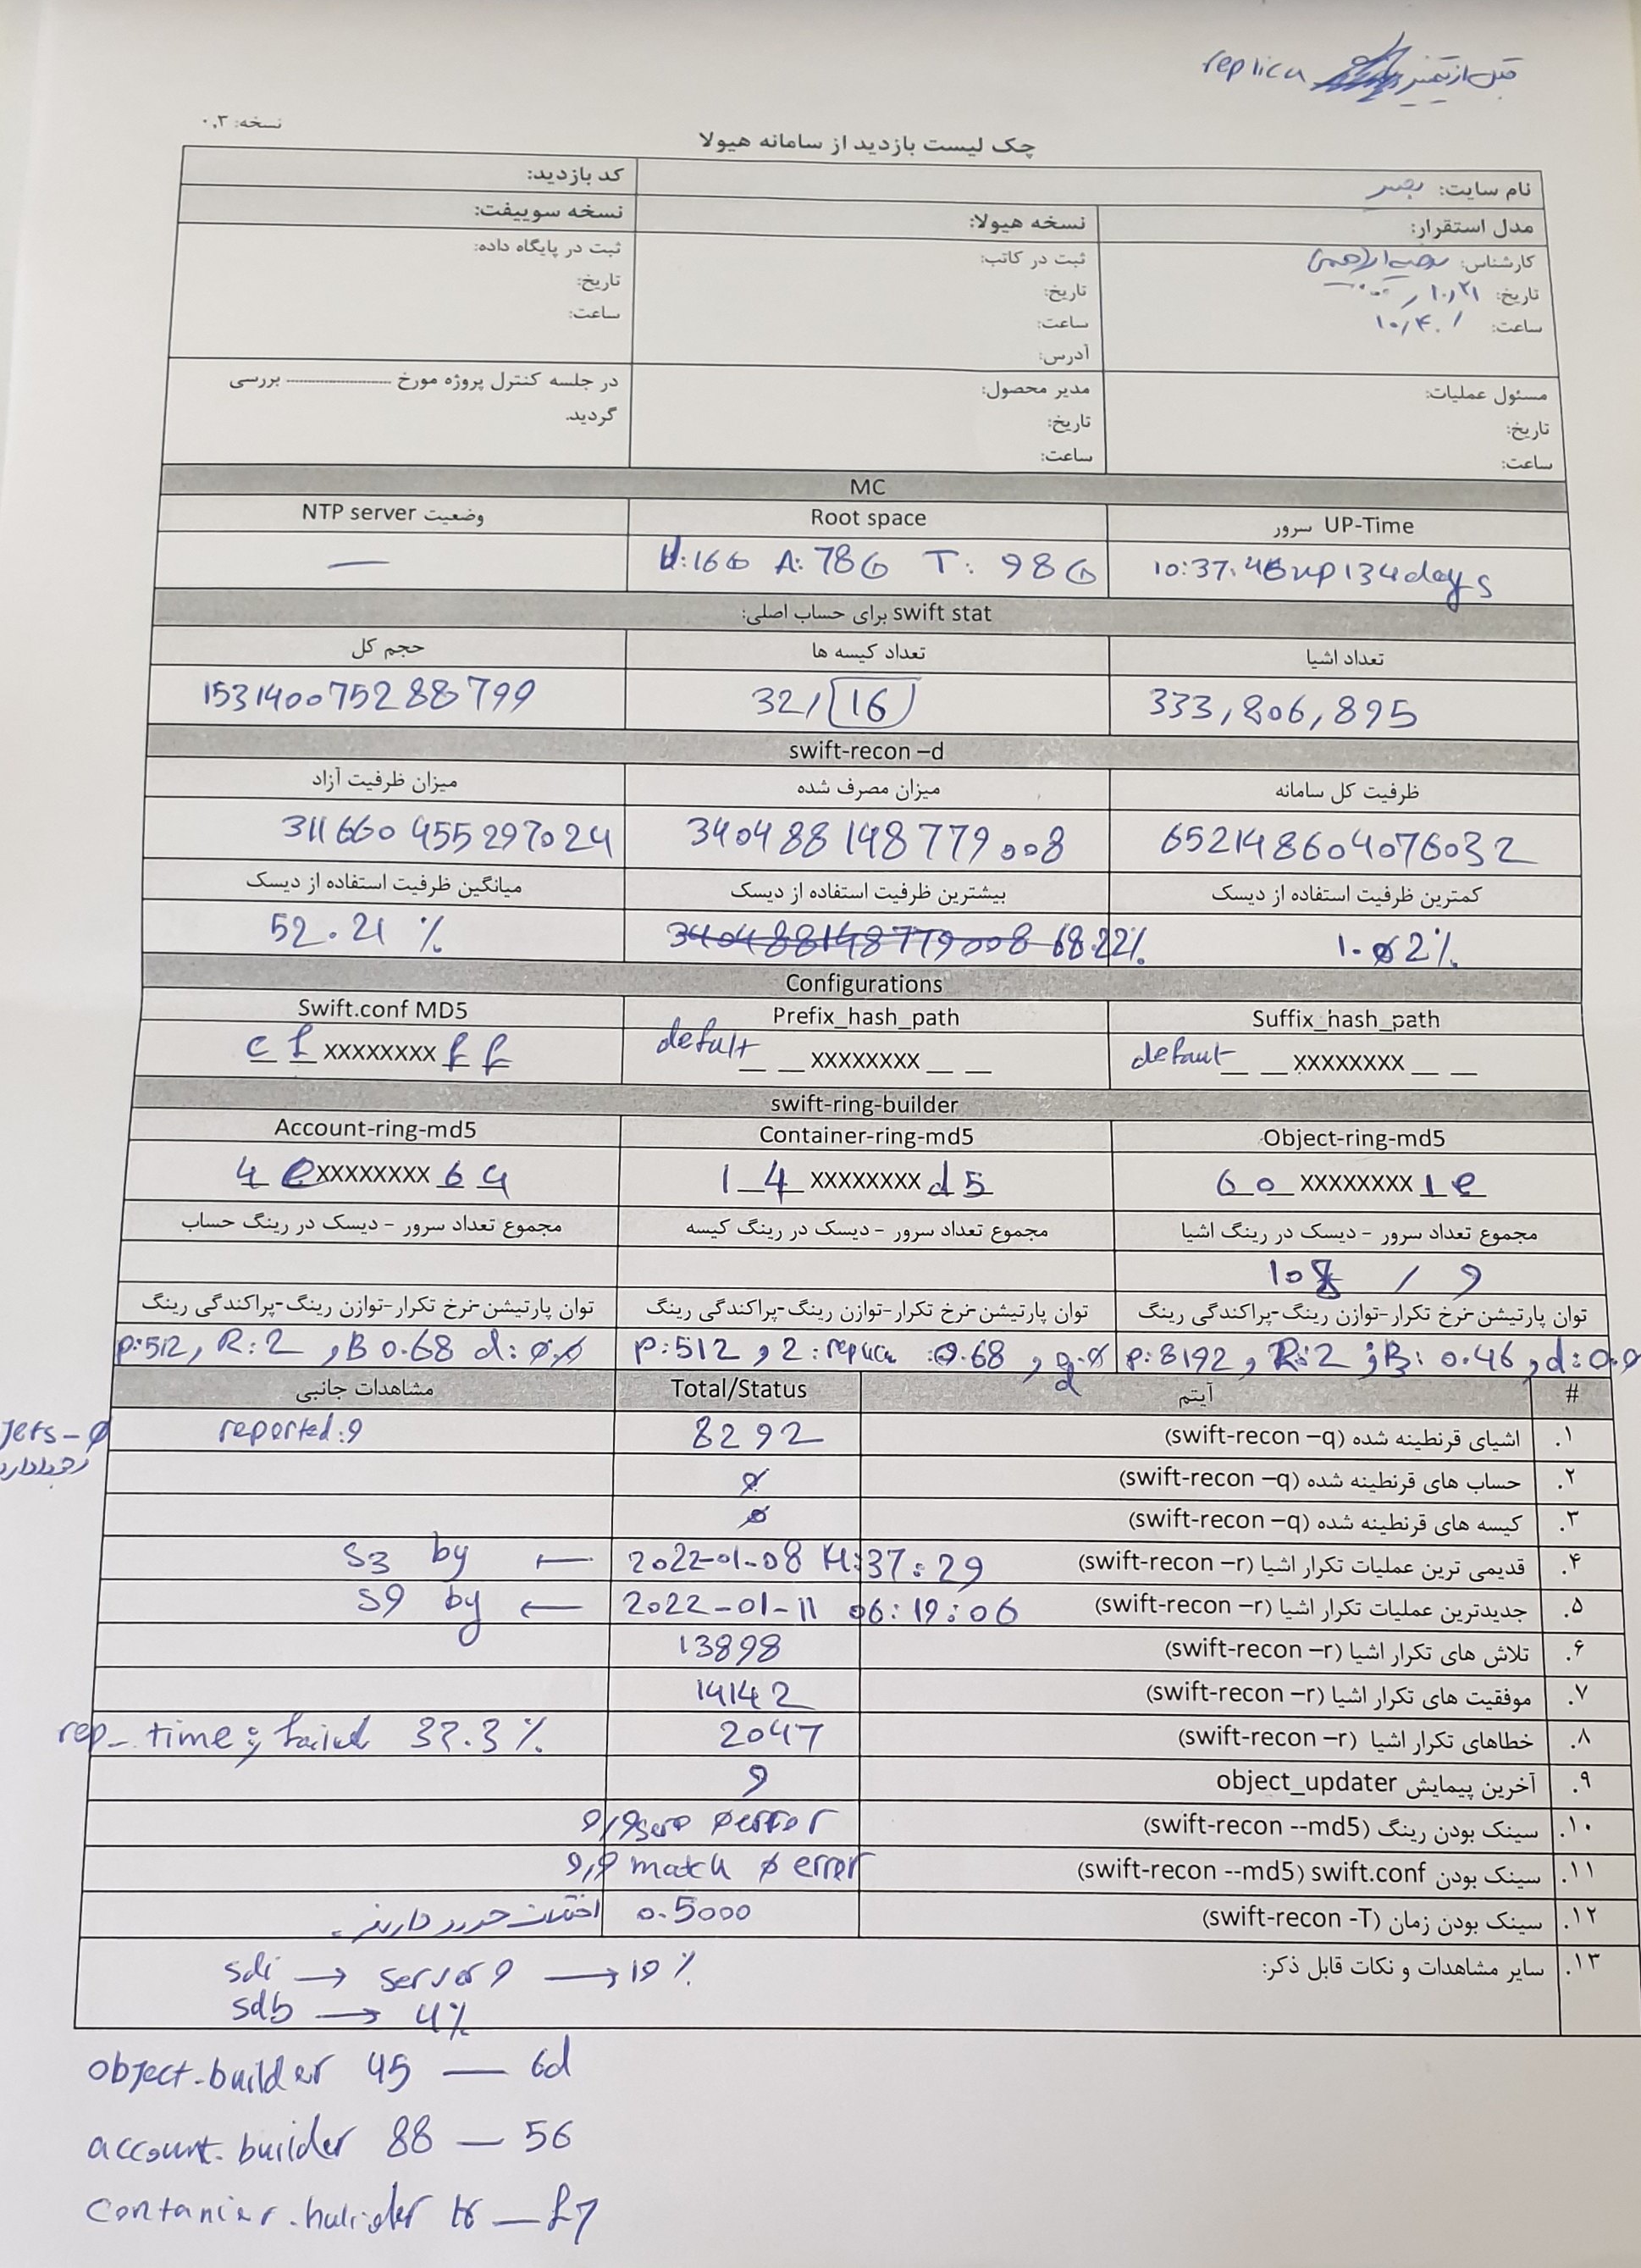 قبل از تغییر replica
نسخه: ۰,۳
چک لیست بازدید از سامانه هیولا
نام سایت: بصیر کد بازدید:
مدل استقرار: نسخه هیولا: نسخه سوییفت:
کارشناس: ثبت در کاتب: ثبت در پایگاه داده:
تاریخ: ۱۰,۲۱ تاریخ: تاریخ:
ساعت: ۱۰,۴۰ ساعت: ساعت:
آدرس:
مسئول عملیات: مدیر محصول: در جلسه کنترل پروژه مورخ ---------- بررسی
تاریخ: تاریخ: گردید.
ساعت: ساعت:
MC
UP-Time سرور Root space وضعیت NTP server
10:37:46 up 134 days U:16G A:78G T: 98G —
swift stat برای حساب اصلی:
تعداد اشیا تعداد کیسه ها حجم کل
333,806,895 32/16 153140075288799
swift-recon –d
ظرفیت کل سامانه میزان مصرف شده میزان ظرفیت آزاد
652148604076032 340488148779008 311660455297024
کمترین ظرفیت استفاده از دیسک بیشترین ظرفیت استفاده از دیسک میانگین ظرفیت استفاده از دیسک
1.02% 340488148779008 68.22% 52.21 %
Configurations
Suffix_hash_path Prefix_hash_path Swift.conf MD5
defaut_ _ xxxxxxxx _ _ defult _ _ xxxxxxxx _ _ c f xxxxxxxx f f
swift-ring-builder
Object-ring-md5 Container-ring-md5 Account-ring-md5
6 0 xxxxxxxx 1 e 1 4 xxxxxxxx d 5 4 e xxxxxxxx 6 4
مجموع تعداد سرور – دیسک در رینگ اشیا مجموع تعداد سرور – دیسک در رینگ کیسه مجموع تعداد سرور – دیسک در رینگ حساب
108 / 9
توان پارتیشن-نرخ تکرار-توازن رینگ-پراکندگی رینگ توان پارتیشن-نرخ تکرار-توازن رینگ-پراکندگی رینگ توان پارتیشن-نرخ تکرار-توازن رینگ-پراکندگی رینگ
p:8192, R:2, B: 0.46, d:0.0 p:512, 2:replica :0.68, 0.0 d p:512, R:2, B 0.68 d:0.0
# آیتم Total/Status مشاهدات جانبی
۱. اشیای قرنطینه شده (swift-recon –q) 8292 reported:9
۲. حساب های قرنطینه شده (swift-recon –q) 0
۳. کیسه های قرنطینه شده (swift-recon –q) 0
۴. قدیمی ترین عملیات تکرار اشیا (swift-recon –r) 2022-01-08 14:37:29 ← S3 by
۵. جدیدترین عملیات تکرار اشیا (swift-recon –r) 2022-01-11 06:19:06 ← S9 by
۶. تلاش های تکرار اشیا (swift-recon –r) 13898
۷. موفقیت های تکرار اشیا (swift-recon –r) 14142
۸. خطاهای تکرار اشیا (swift-recon –r) 2047 rep_time failed 33.3 %
۹. آخرین پیمایش object_updater 9
۱۰. سینک بودن رینگ (swift-recon --md5) 9/9 error
۱۱. سینک بودن swift.conf (swift-recon --md5) 9/9 match 0 error
۱۲. سینک بودن زمان (swift-recon -T) 0.5000
۱۳. سایر مشاهدات و نکات قابل ذکر:
sdi → server 9 → 19 %
sdb → 4%
object.builder 45 — 6d
account.builder 88 — 56
— f7